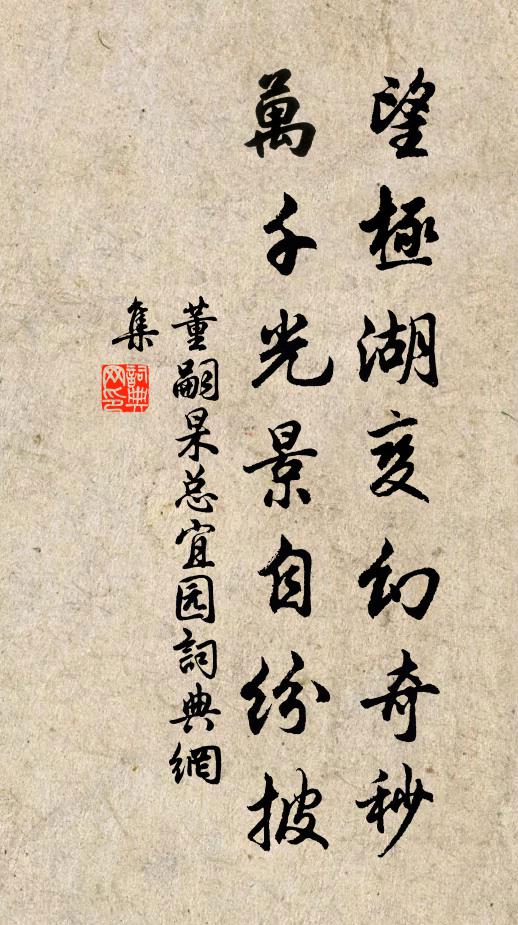 望極湖变幻奇秒
萬千光景自纷披
董嗣杲总宜园詞典網
集
詞典
网印